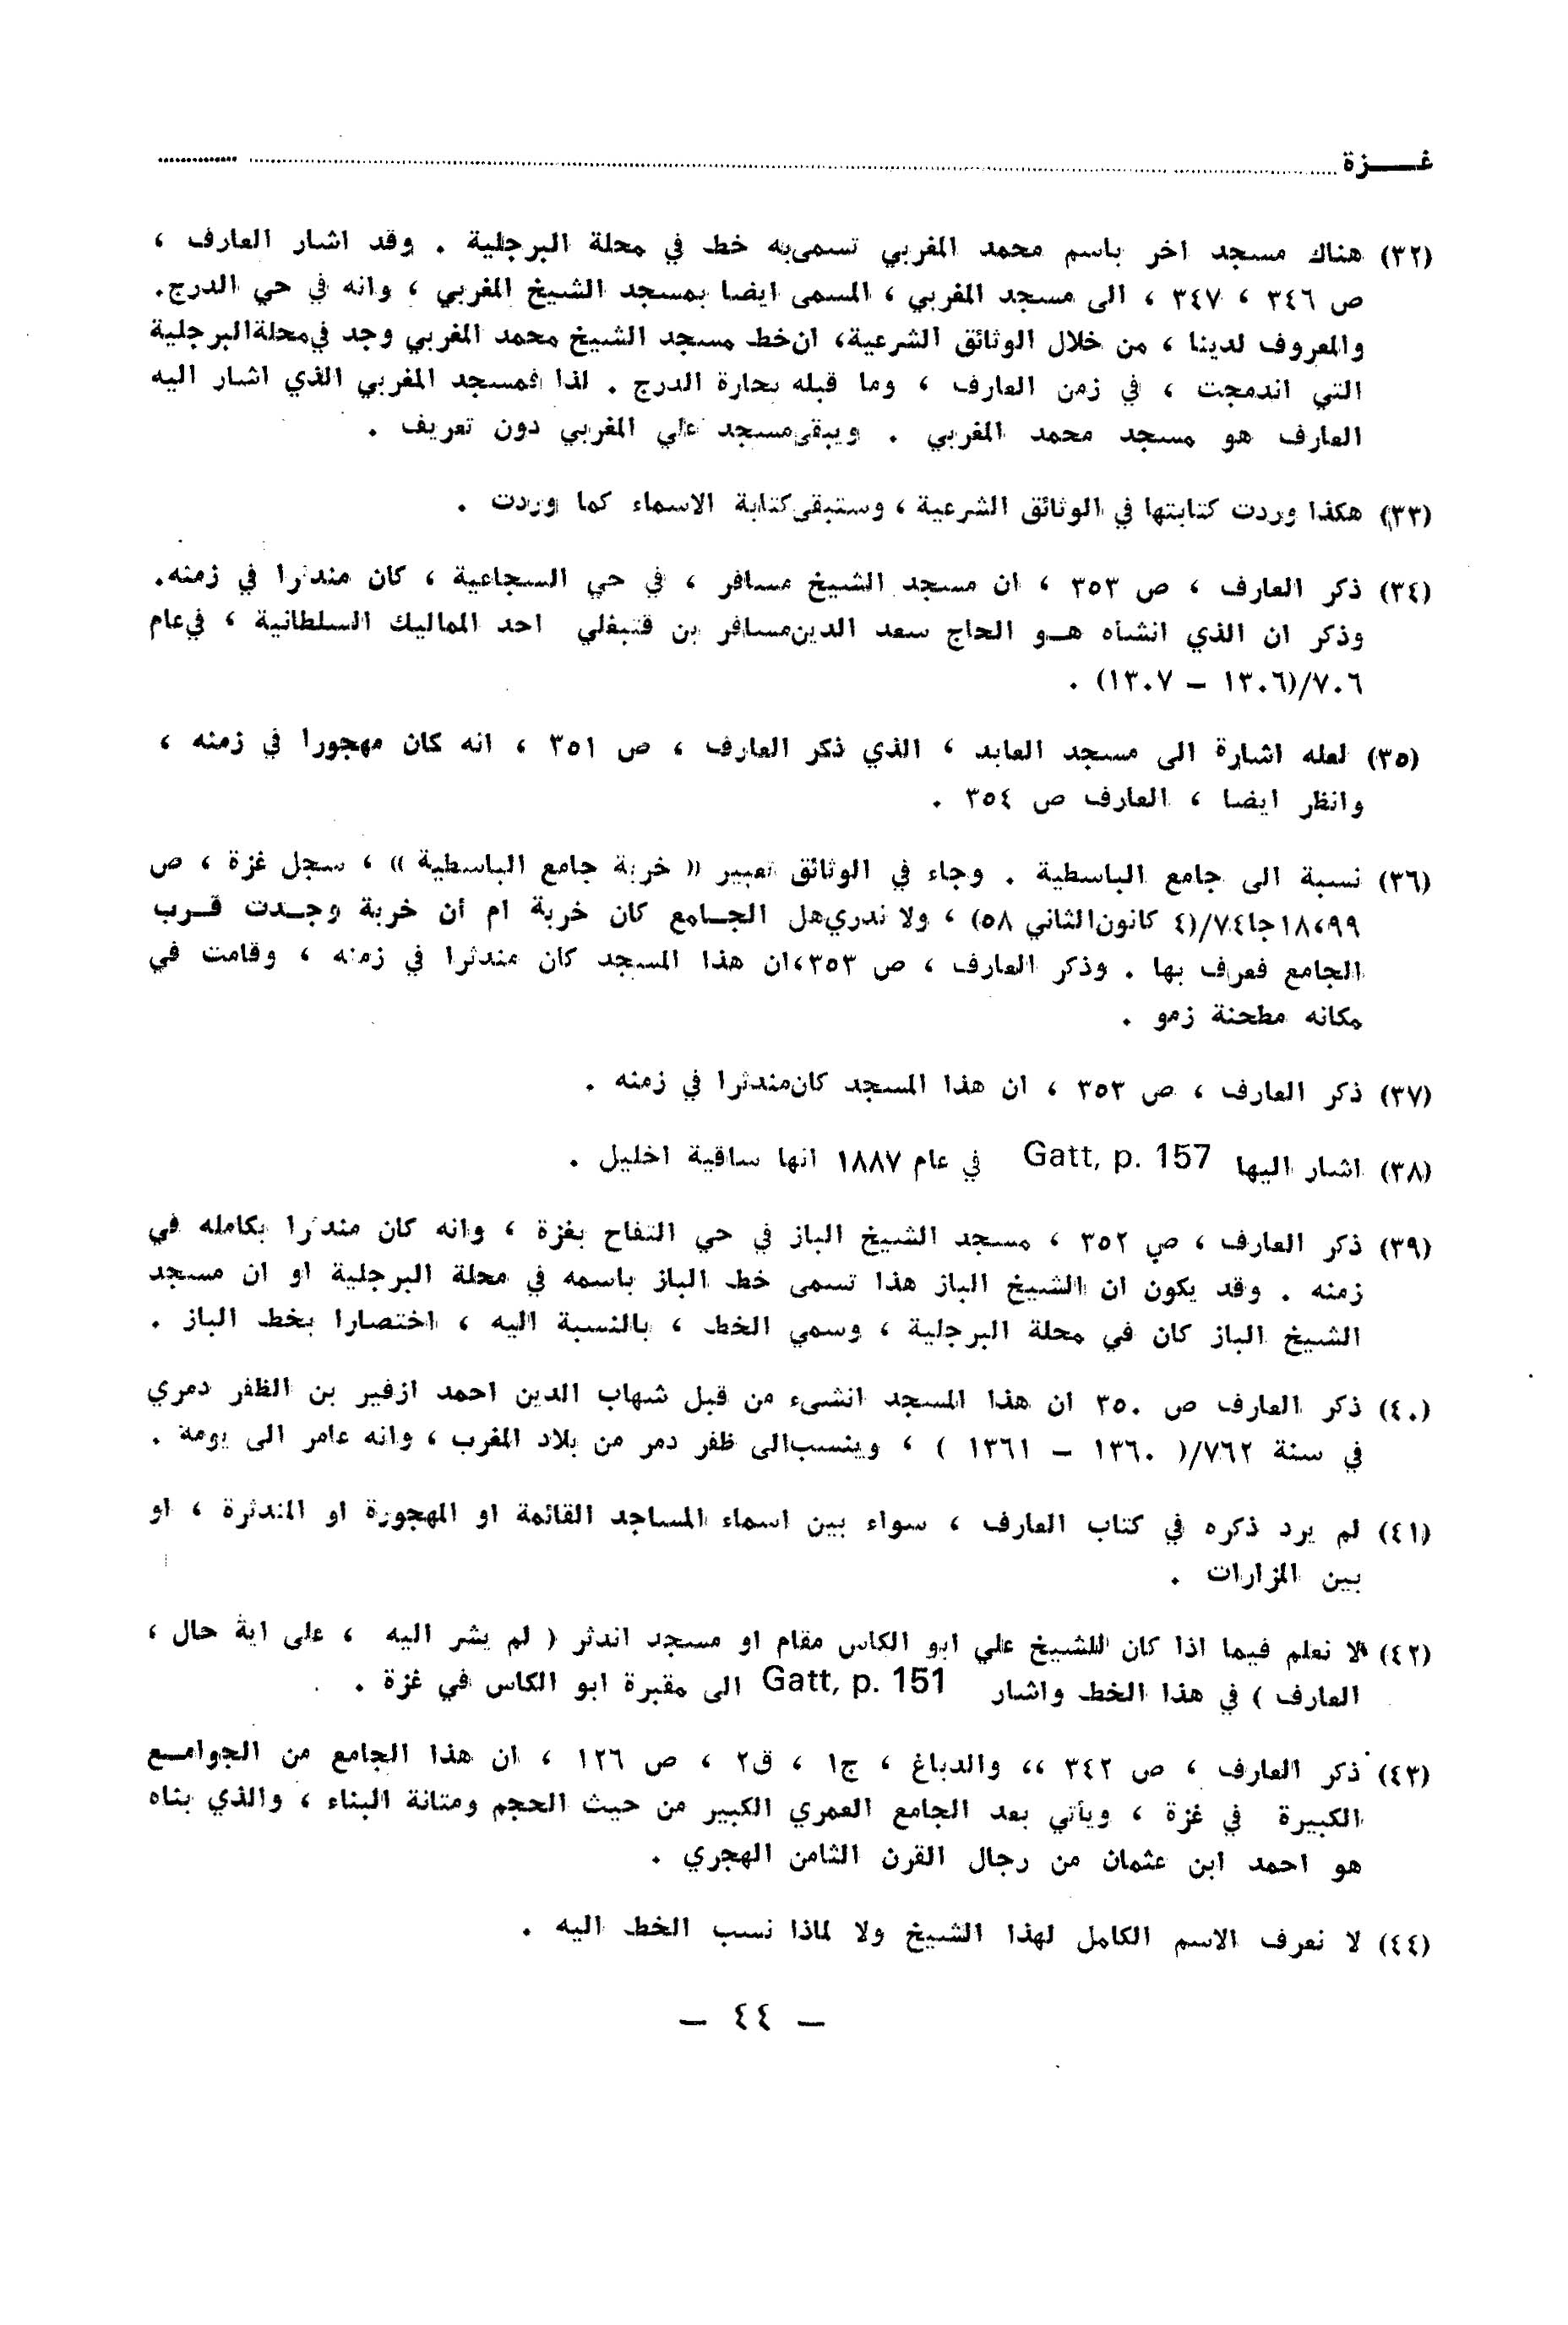 غـــزة
(٣٢) هناك مسجد اخر باسم محمد المغربي تسمى به خط في محلة البرجلية . وقد اشار العارف ،
ص ٣٤٦ ، ٣٤٧ ، الى مسجد المغربي ، المسمى ايضا بمسجد الشيخ المغربي ، وانه في حي الدرج.
والمعروف لدينا ، من خلال الوثائق الشرعية، ان خط مسجد الشيخ محمد المغربي وجد في محلة البرجلية
التي اندمجت ، في زمن العارف ، وما قبله بحارة الدرج . لذا فمسجد المغربي الذي اشار اليه
العارف هو مسجد محمد المغربي . ويبقى مسجد علي المغربي دون تعريف .
(٣٣) هكذا وردت كتابتها في الوثائق الشرعية ، وستبقى كتابة الاسماء كما وردت .
(٣٤) ذكر العارف ، ص ٣٥٣ ، ان مسجد الشيخ مسافر ، في حي السجاعية ، كان مندثرا في زمنه.
وذكر ان الذي انشأه هــو الحاج سعد الدين مسافر بن قتبغلي احد المماليك السلطانية ، في عام
٧٠٦/(١٣٠٦ – ١٣٠٧) .
(٣٥) لعله اشارة الى مسجد العابد ، الذي ذكر العارف ، ص ٣٥١ ، انه كان مهجورا في زمنه ،
وانظر ايضا ، العارف ص ٣٥٤ .
(٣٦) نسبة الى جامع الباسطية . وجاء في الوثائق تعبير « خربة جامع الباسطية » ، سجل غزة ، ص
٩٩،١٨جا٧٤/(٤ كانون الثاني ٥٨) ، ولا ندري هل الجــامع كان خربة ام أن خربة وجــدت قــرب
الجامع فعرف بها . وذكر العارف ، ص ٣٥٣،ان هذا المسجد كان مندثرا في زمنه ، وقامت في
مكانه مطحنة زمو .
(٣٧) ذكر العارف ، ص ٣٥٣ ، ان هذا المسجد كان مندثرا في زمنه .
(٣٨) اشار اليها Gatt, p. 157 في عام ١٨٨٧ انها ساقية اخليل .
(٣٩) ذكر العارف ، ص ٣٥٢ ، مسجد الشيخ الباز في حي التفاح بغزة ، وانه كان مندثرا بكامله في
زمنه . وقد يكون ان الشيخ الباز هذا تسمى خط الباز باسمه في محلة البرجلية او ان مسجد
الشيخ الباز كان في محلة البرجلية ، وسمي الخط ، بالنسبة اليه ، اختصارا بخط الباز .
(٤٠) ذكر العارف ص ٣٥٠ ان هذا المسجد انشىء من قبل شهاب الدين احمد ازفير بن الظفر دمري
في سنة ٧٦٢/( ١٣٦٠ – ١٣٦١ ) ، وينسب الى ظفر دمر من بلاد المغرب ، وانه عامر الى يومة .
(٤١) لم يرد ذكره في كتاب العارف ، سواء بين اسماء المساجد القائمة او المهجورة او المندثرة ، او
بين المزارات .
(٤٢) لا نعلم فيما اذا كان للشيخ علي ابو الكاس مقام او مسجد اندثر ( لم يشر اليه ، على اية حال ،
العارف ) في هذا الخط واشار Gatt, p. 151 الى مقبرة ابو الكاس في غزة .
(٤٣) ذكر العارف ، ص ٣٤٢ ،، والدباغ ، ج١ ، ق٢ ، ص ١٢٦ ، ان هذا الجامع من الجوامــع
الكبيرة في غزة ، ويأتي بعد الجامع العمري الكبير من حيث الحجم ومتانة البناء ، والذي بناه
هو احمد ابن عثمان من رجال القرن الثامن الهجري .
(٤٤) لا نعرف الاسم الكامل لهذا الشيخ ولا لماذا نسب الخط اليه .
– ٤٤ –